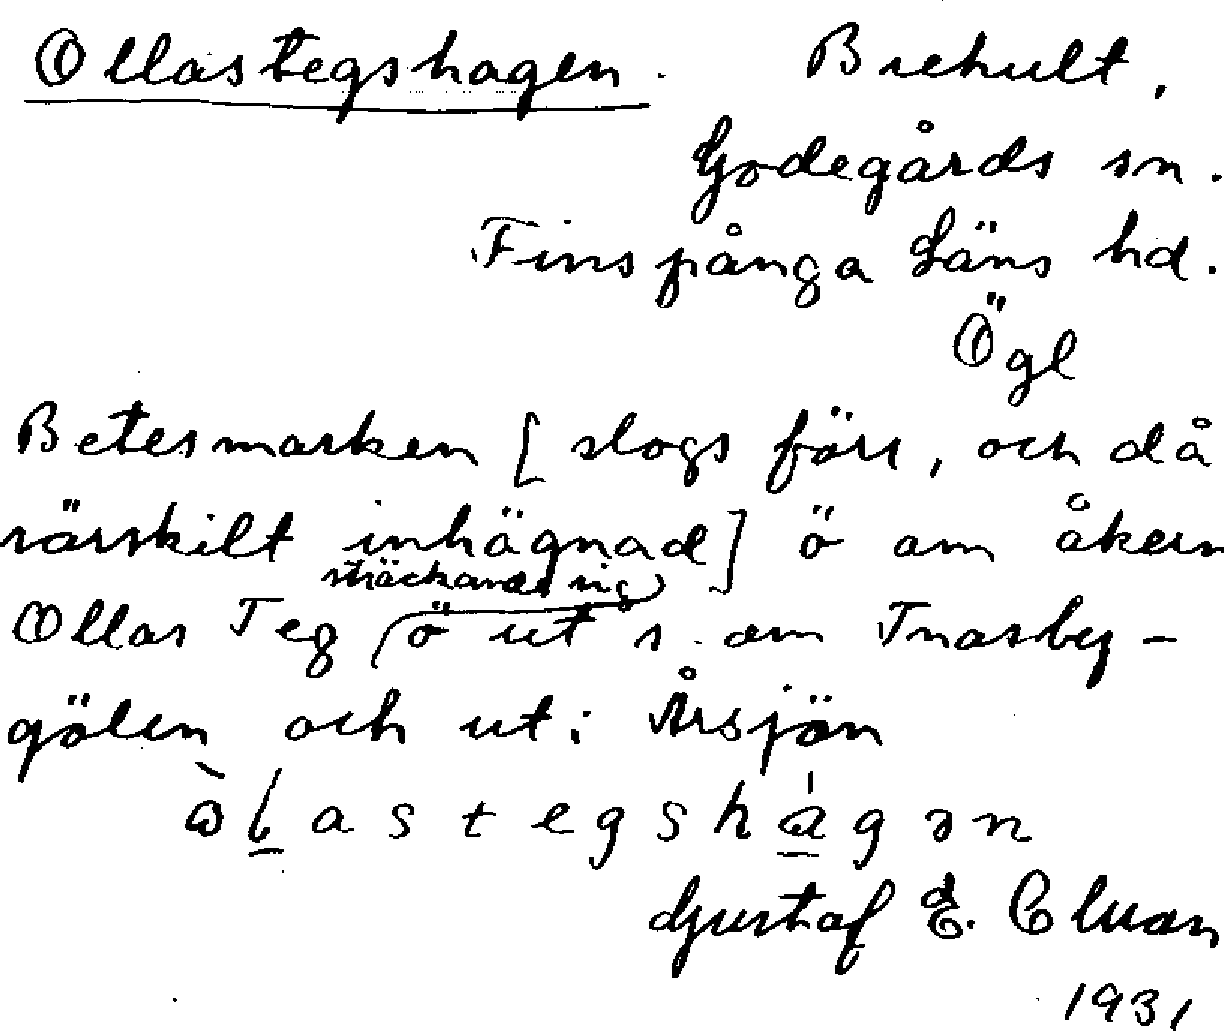 Ollastegshagen. Brehult,
Godegårds sn.
Finspånga Läns hd.
Ögl
Betesmarken [ slogs förr, och då
särskilt inhägnad] ö om åkern
sträckande sig
Ollas Teg (ö ut s. om Tnasby-
gölen och ut i Årsjön
gustaf E.
1931